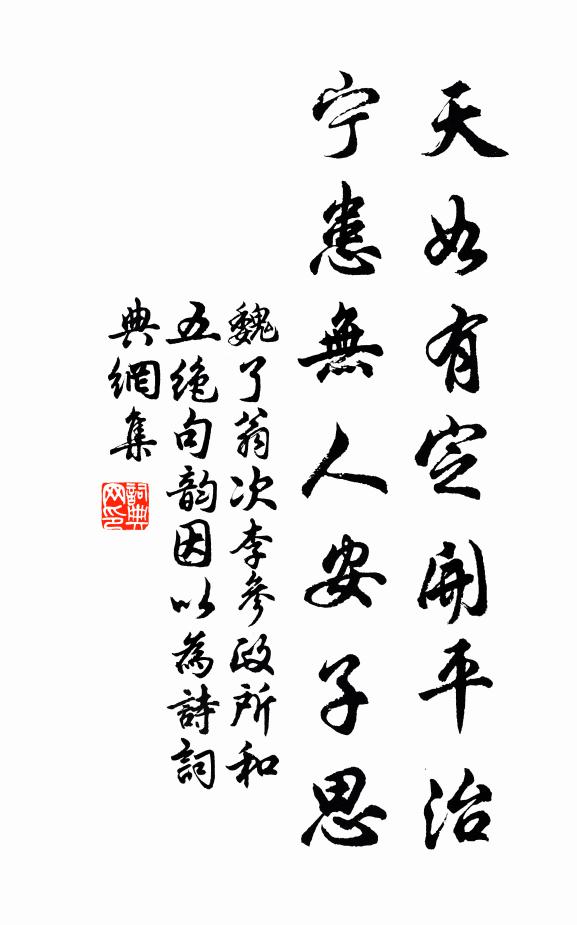 天如有定開平治
宁患無人安子思
魏了翁次李參政所和
五绝句韵因以為詩詞
典網集
詞典网印